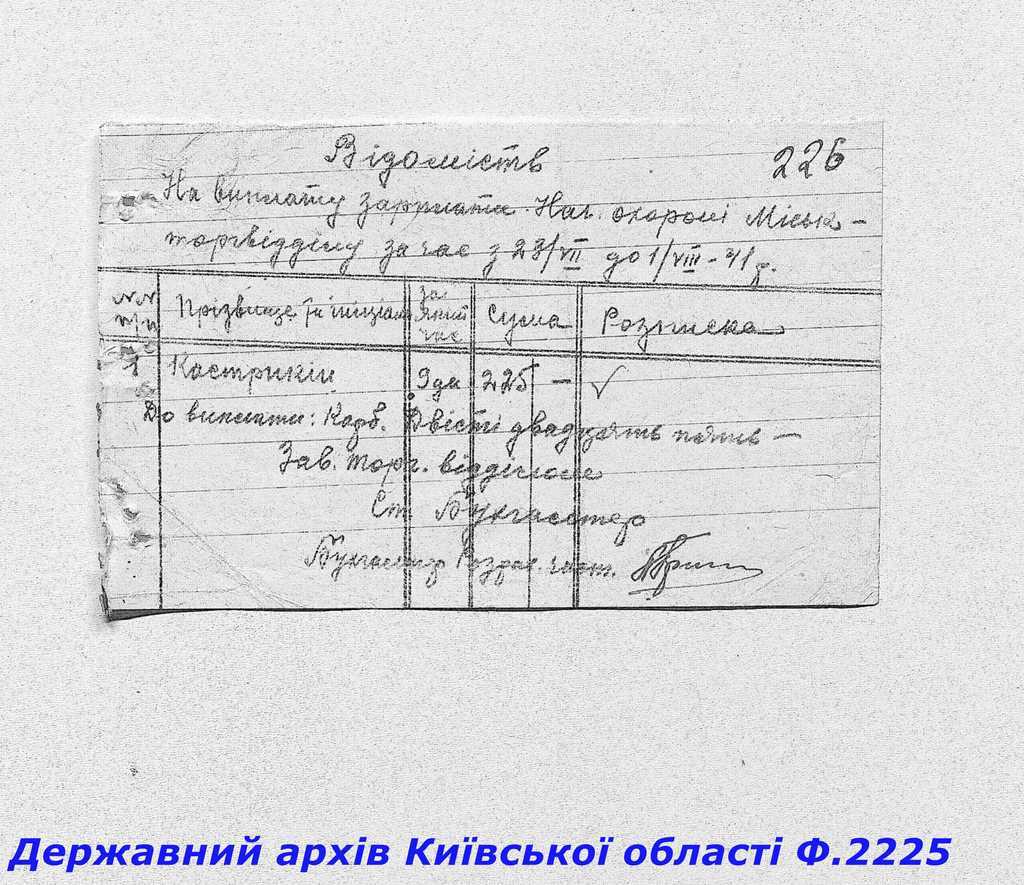 Відомість
226
На виплату зарплати Нач. охороні Міськ-
торгвідділу за час з 23/VII до 1/VIII-41 р.
№№ п/п Прізвище й ініціали за який час Сума Розписка
1 Кострикін 9 дн 225 — ✓
До виплати: Карб. Двісті двадцять п'ять —
Зав. торг. відділом
Ст. Бухгалтер
Бухгалтер Розрах. част.
Державний архів Київської області Ф.2225